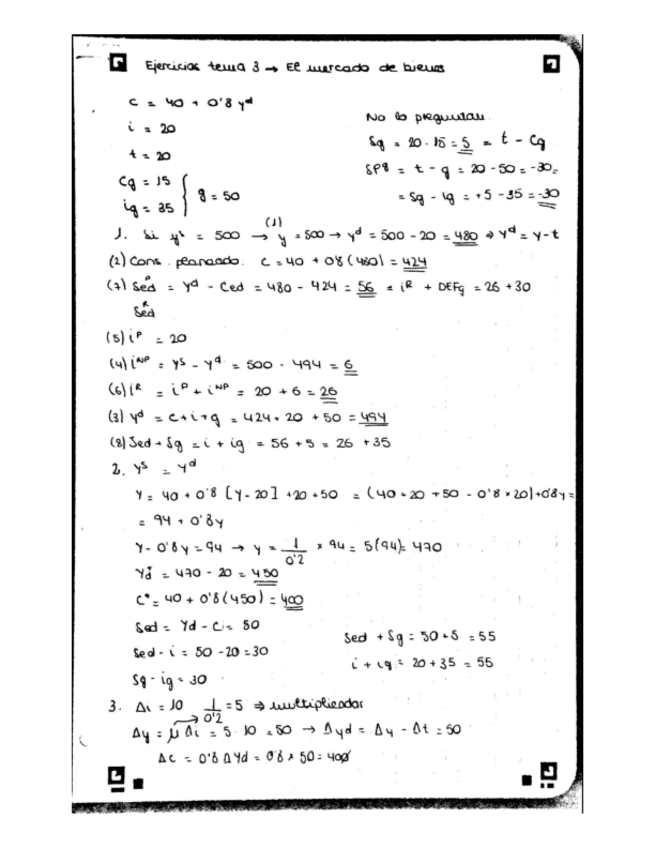 Ejercicios tema 3 → El mercado de bienes
c = 40 + 0'8 yᵈ
i = 20
t = 20
Cg = 15
ig = 35
g = 50
No lo preguntan.
Sg = 20 - 15 = 5 = t - Cg
SPg = t - g = 20 - 50 = -30 =
= Sg - ig = +5 - 35 = -30
1. Si yˢ = 500 → (1) y = 500 → yᵈ = 500 - 20 = 480 ⇒ yᵈ = y - t
(2) Cons. planeado. C = 40 + 0'8 (480) = 424
(7) Sedᴾ = yᵈ - Ced = 480 - 424 = 56 = iᴿ + DEFg = 26 + 30
Sedᴿ
(5) iᴾ = 20
(4) iᴺᴾ = yˢ - yᵈ = 500 - 494 = 6
(6) iᴿ = iᴾ + iᴺᴾ = 20 + 6 = 26
(3) yᵈ = c + i + g = 424 + 20 + 50 = 494
(8) Sed + Sg = i + ig = 56 + 5 = 26 + 35
2. yˢ = yᵈ
Y = 40 + 0'8 [Y - 20] + 20 + 50 = (40 + 20 + 50 - 0'8 × 20) + 0'8y =
= 94 + 0'8y
Y - 0'8y = 94 → y = 1/0'2 × 94 = 5(94) = 470
Yd* = 470 - 20 = 450
C* = 40 + 0'8 (450) = 400
Sed = Yd - C = 50
Sed - i = 50 - 20 = 30
Sg - ig = 30
Sed + Sg = 50 + 5 = 55
i + ig = 20 + 35 = 55
3. Δi = 10 1/0'2 = 5 ⇒ multiplicador
Δy = μ Δi = 5 · 10 = 50 → Δyd = Δy - Δt = 50
Δc = 0'8 ΔYd = 0'8 × 50 = 400